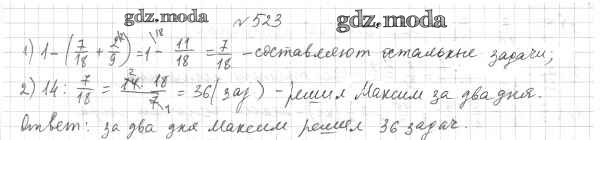 gdz.moda №523 gdz.moda
1) 1-(7/18 + 2/9) = 1 - 11/18 = 7/18 - составляют остальные задачи;
2) 14 : 7/18 = 14·18/7 = 36 (заg) - решил Максим за два дня.
Ответ: за два дня Максим решил 36 задач.